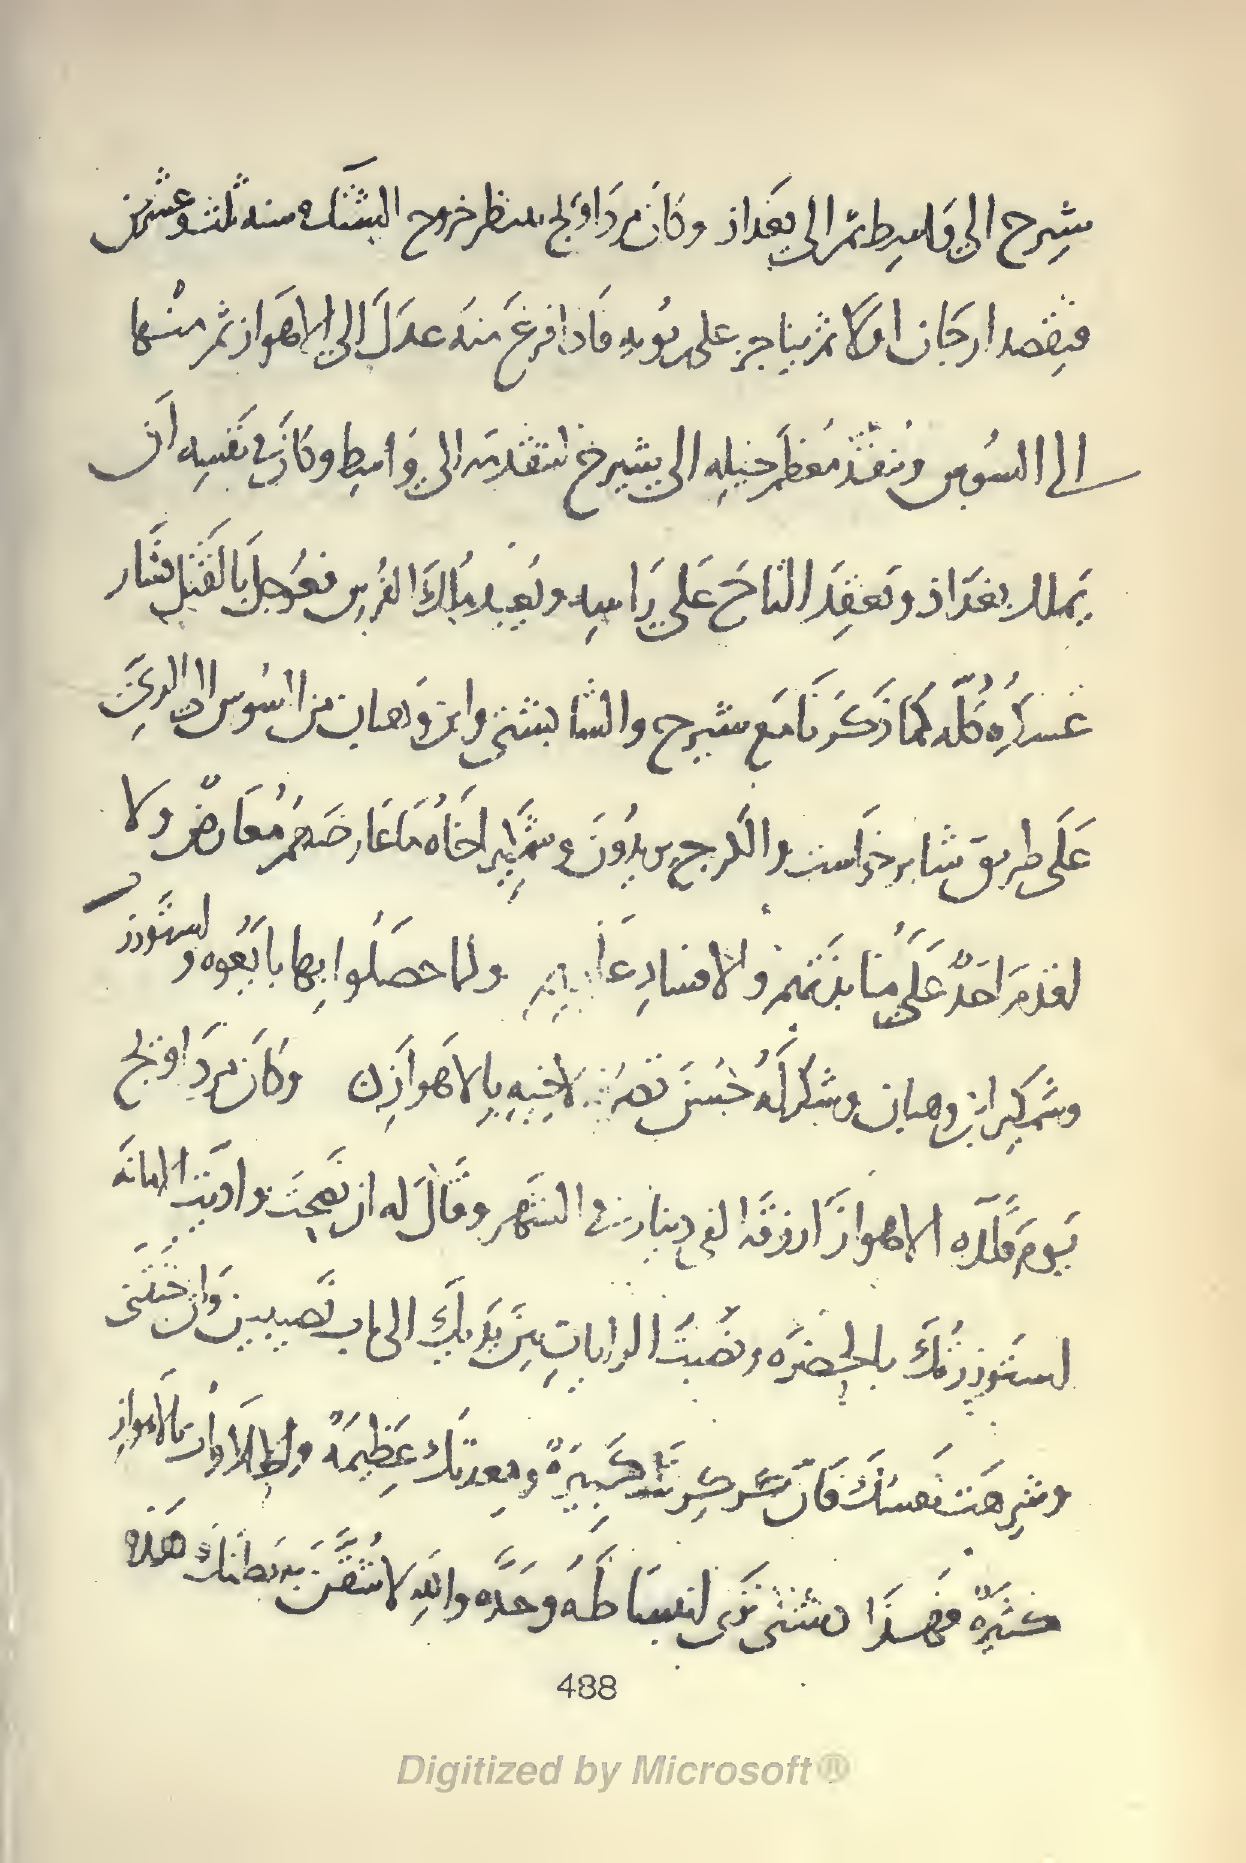 شيرج الى واسط ثم الى بغداذ وكان مرداويج ينتظر خروج الشتاء سنة ثلث وعشرين
فيقصد ارجان اولا ثم يناجز على بن بويه فاذا فرغ منه عدل الى الاهواز ثم منها
الى السوس وينفذ معظم خيله الى شيرج لتقدمه الى واسط وكان فى نفسه ان
يملك بغداذ ويعقد التاج على راسه ويعيد ملك الفرس فعوجل بالقتل فسار
عسكره كله كما ذكرنا مع شيرج والشابشتى وابن وهبان من السوس الى الرى
على طريق شابرخواست والكرج يريدون وشمكير اخاه ما عارضهم معارض ولا
اقدم احد على منابذتهم والافساد ولما حصلوا بها بايعوه واستوزر
وشمكير ابن وهبان وشكر له حسن لاخيه بالاهواز وكان مرداويج
يوم قلده الاهواز ارزقه الفى دينار فى الشهر وقال له ان نصحت واديت الامانة
استوزرتك بالحضرة ونصبت الرايات بين يديك الى باب نصيبين وان خنتنى
وشرهت نفسك فان كبيرة ومعدتك عظيمة والاهواز
كثيرة فهذا دشتى ترى انبساطه وحده والله لا شققن به بطنك هذه
488
Digitized by Microsoft®